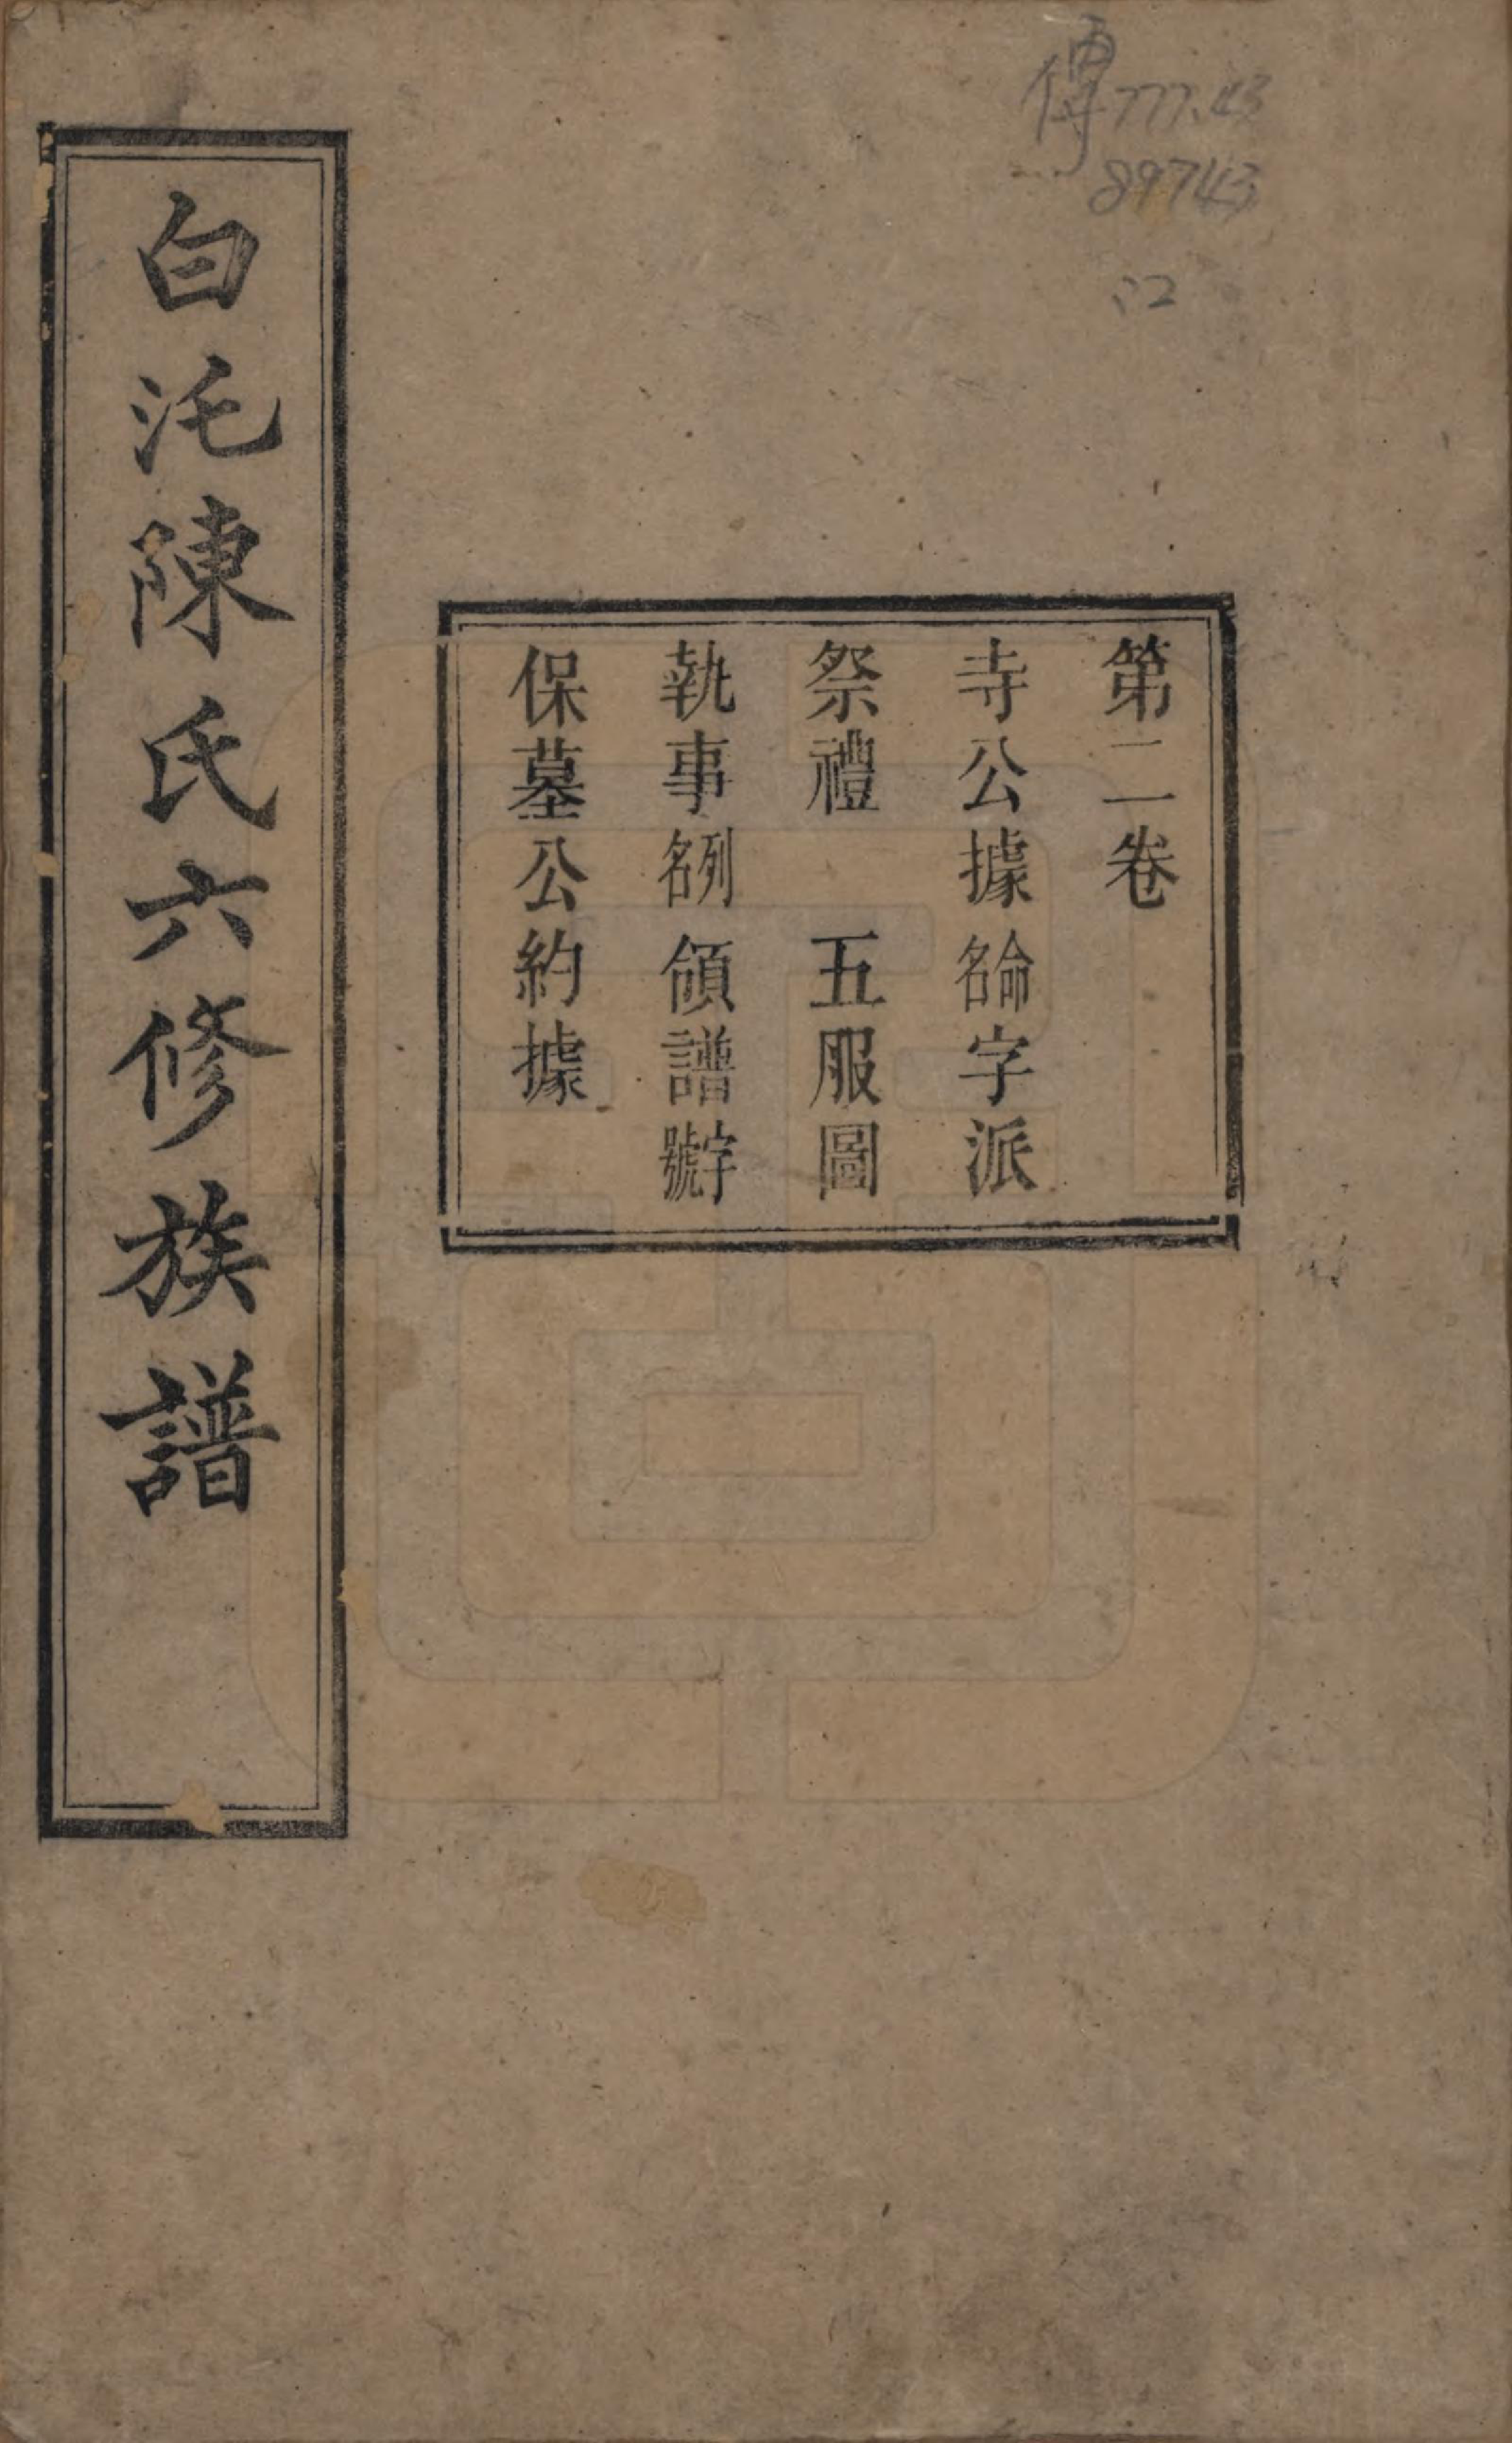 傳777.43
89743
:2
第二卷
寺公據命名字派
祭禮 五服圖
執事列名領譜字號
保墓公約據
白汑陳氏六修族譜